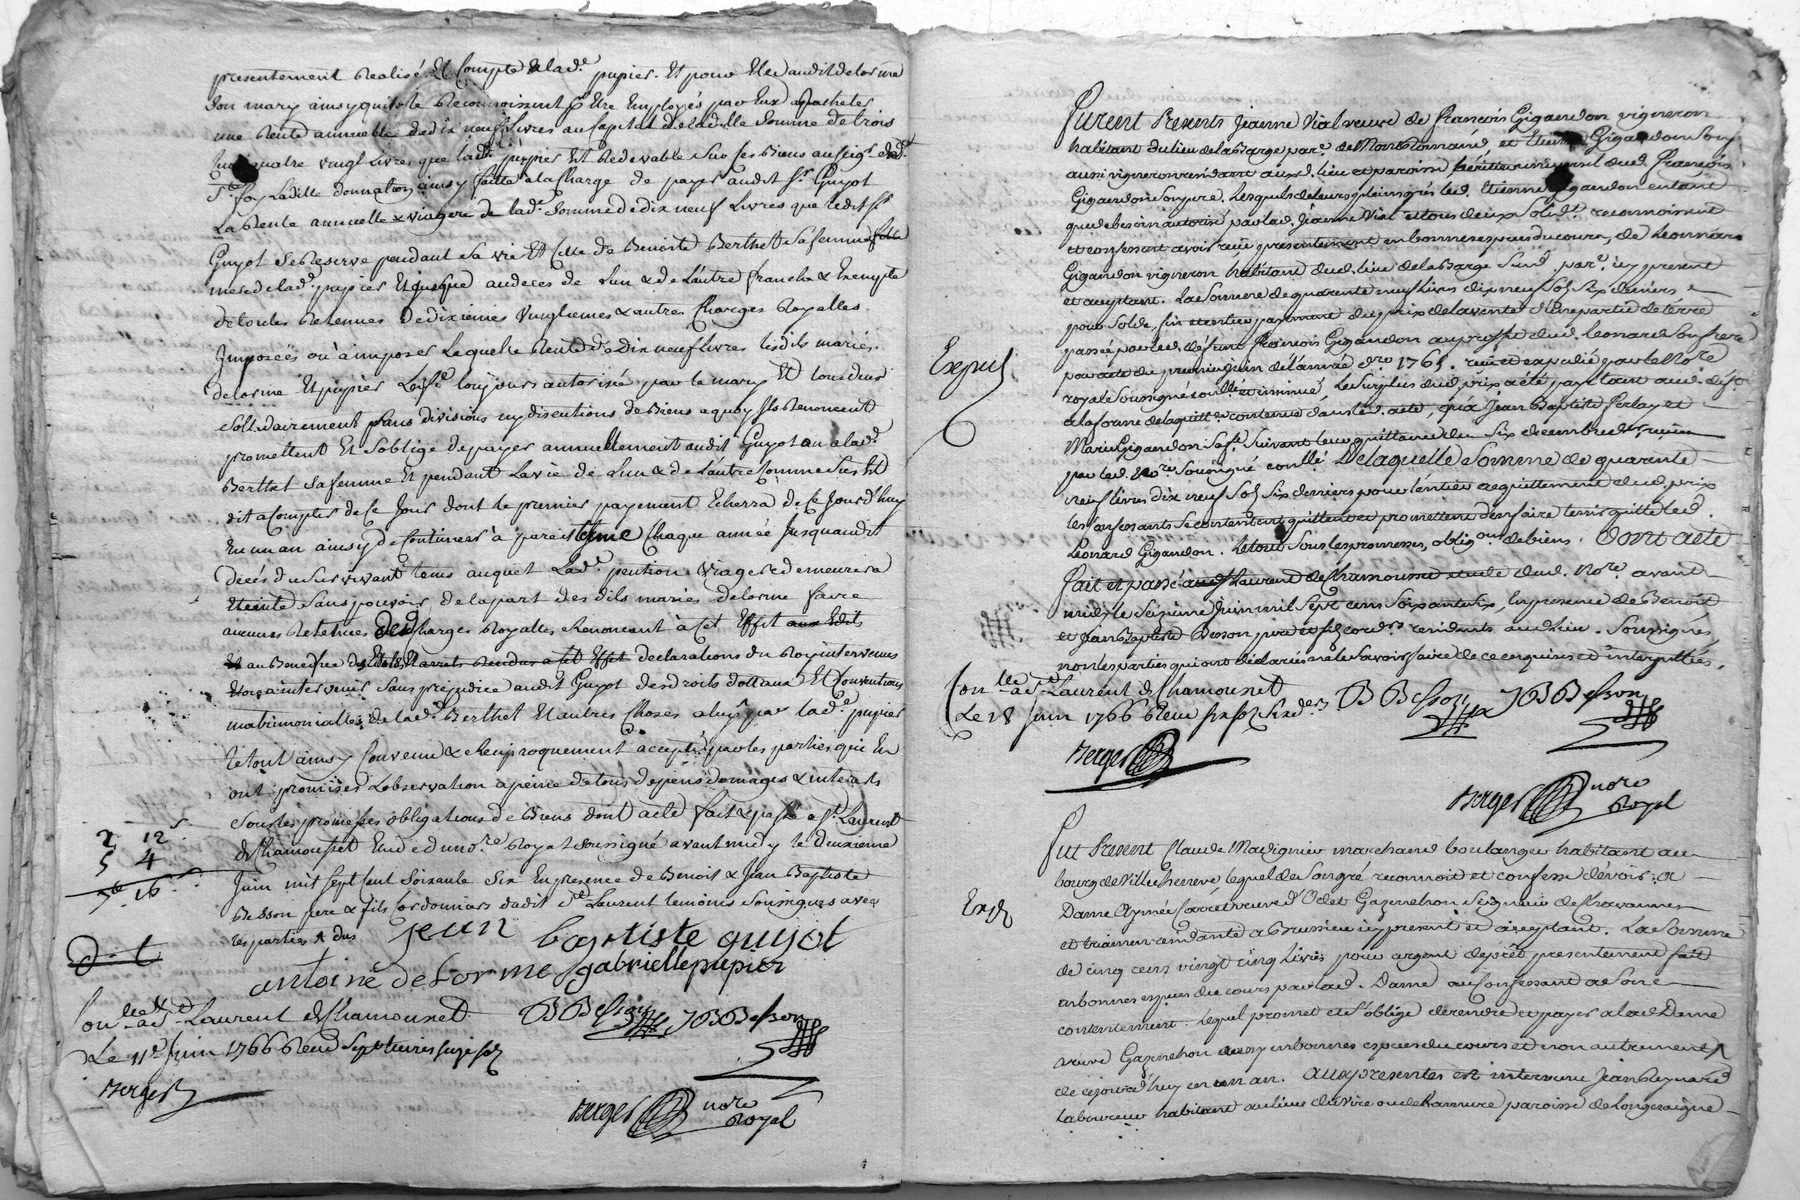 presentement Realisé Et Compté a lad.e pupier. Et pour Elle audit delorme
son mary ainsy quils le Reconnoissent p Etre Employés par Eux a Racheter
une Rente annuelle de dix neuf Livres au Capital de lad.e Somme de trois
quatre vingt Livres que lad.e pupier Est Redevable Sur ses Biens
donnation ainsy faitte a la Charge de payer audit Sr Guyot
La Rente annuelle & viagere de lad.e Somme de dix neuf Livres que ledit Sr
Guyot se Reserve pendant sa vie Et Celle de Benoite Berthet sa femme
lad.e pupier Et jusque au deces de Lun & de Lautre franche & Exempte
de toutes Retenues de dixiemes vingtiemes & autres Charges Royalles
Imposées ou à imposer Laquelle Rente de dix neuf Livres lesdits mariés
delorme Et pupier toujours autorisée par le mary Et tous deux
Sollidairement sans divisions ny discutions de Biens a quoy ils Renoncent
promettent Et s'oblige de payer annuellement audit Guyot ou a lad.e
Berthet sa femme Et pendant La vie de Lun & de Lautre Comme Sus Est
dit a Compter de Ce Jour dont le premier payement Echerra de Ce Jourd'huy
En un an ainsy de Continuer à pareil terme Chaque année Jusquaudit
decés du Survivant tems auquel Lad.e pention viagere demeurera
Eteinte Sans pouvoir de la part des dits mariés delorme faire
aucunes Retenues des Charges Royalles Renoncant à Cet Effet aux Edit
Et au Benefice des Edits Et arrets Rendus a cet Effet declarations du Roy intervenus
Et a intervenir Sans prejudice audit Guyot des droits dottaux Et Conventions
matrimonialles de lad.e Berthet Et autres Choses par lad.e pupier
Le tout ainsy Convenu & Reciproquement accepté par les parties qui En
ont promises L'observation a peine de tous depens domages & interets
Sous les promesses obligations de Biens dont acte fait & passé a St. Laurent
de Chamousset Etude du no.re Royal Soussigné avant midy le deuxieme
Juin mil sept Cent Soixante Six En presence de Benoit & Jean Baptiste
Besson pere & fils Cordonniers dudit St Laurent temoins Soussignés avec
les parties
2 12 s
5 4
16
jean baptiste guijot
antoine delorme gabriellepupier
Con.lle a St Laurent de Chamousset BBesson JBBesson
Le 11e Juin 1766 Receu Sept livres
Berger
Berger nore
Royal
Furent Presents Jeanne Vial veuve de François Gigandon vigneron
habitant du lieu de la Barge par.e de Montromand et Etienne Gigandon Son fils
aussi vigneron residant aud. lieu et paroisse heritier universel dud. François
Gigandon Son pere. Lesquels de leurs plains grés led. Etienne Gigandon entant
que de besoin autorisé par lad. Jeanne Vial et tous deux Solid.t reconnoissent
et confessent avoir reçu presentement en bonnes especes du cours, de Leonard
Gigandon vigneron habitant dud. lieu de la Barge Susd. par.e icy present
et acceptant. La Somme de quarante neuf livres dix neuf Sols Six deniers
pour Solde, fin et entier payement du prix de la vente d'une partie de terre
passée par led. defunt François Gigandon au proffit dud. Leonard Son frere
par acte du premier Juin de l'année d.re 1765. reçu et expedié par le No.re
royal Soussigné controllé et insinué, Le Surplus dud. prix a été payé tant aud. defunt
a la forme de la quitt.ce contenue dans led. acte, qu'a Jean Baptiste Ferlay et
Marie Gigandon Sa fe. Suivant leur quittance du Six decembre d.r reçue
par led. No.re Soussigné conllé Delaquelle Somme de quarante
neuf livres dix neuf Sols Six deniers pour l'entier acquittement dud. prix
les confessants Se contentent quittent et promettent d'en faire tenir quitte led.
Leonard Gigandon. Le tout Sous les promesses, oblig.ons de biens. Dont acte
fait et passé aud. St Laurent de Chamousset etude dud. No.re avant
midy le Seizieme Juin mil Sept cens Soixante Six, En presence de Benoît
et Jean Baptiste Besson pere et fils cord.rs residents aud. lieu. Soussignés,
non les parties qui ont declarées ne le Savoir faire de ce enquises et interpellées.
Exped
Con.lle a St Laurent de Chamousset BBesson JBBesson
Le 18 Juin 1766 Receu six sols six d.ers
Berger
Berger nore
Royal
Fut Present Claude Madignier marchand boulanger habitant au
bourg de Villechenève lequel de Son gré reconnoit et confesse devoir a
Exp
Dame Aymée Carret veuve d'Odet Gazenchon Seigneur de Chavannes
et residante a Brussieu icy presente et acceptant. La Somme
de cinq cens vingt cinq livres pour argent de prêt presentement fait
en bonnes especes du cours par lad. Dame au Confessant a Son
contentement. Lequel promet et s'oblige de rendre et payer a lad. Dame
veuve Gazenchon aussy en bonnes especes du cours et non autrement
de cejourd'huy en un an. Aux presentes est intervenu Jean Reynard
laboureur habitant au lieu paroisse de Longesaigne